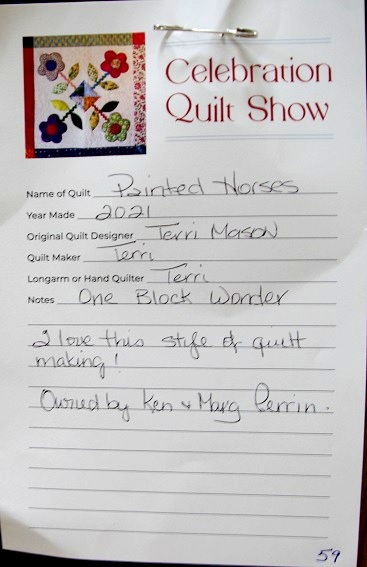 Celebration
Quilt Show
Name of Quilt Painted Horses
Year Made 2021
Original Quilt Designer Terri Mason
Quilt Maker Terri
Longarm or Hand Quilter Terri
Notes One Block Wonder
I love this style of quilt
making!
Owned by Ken & Marg Perrin.
59